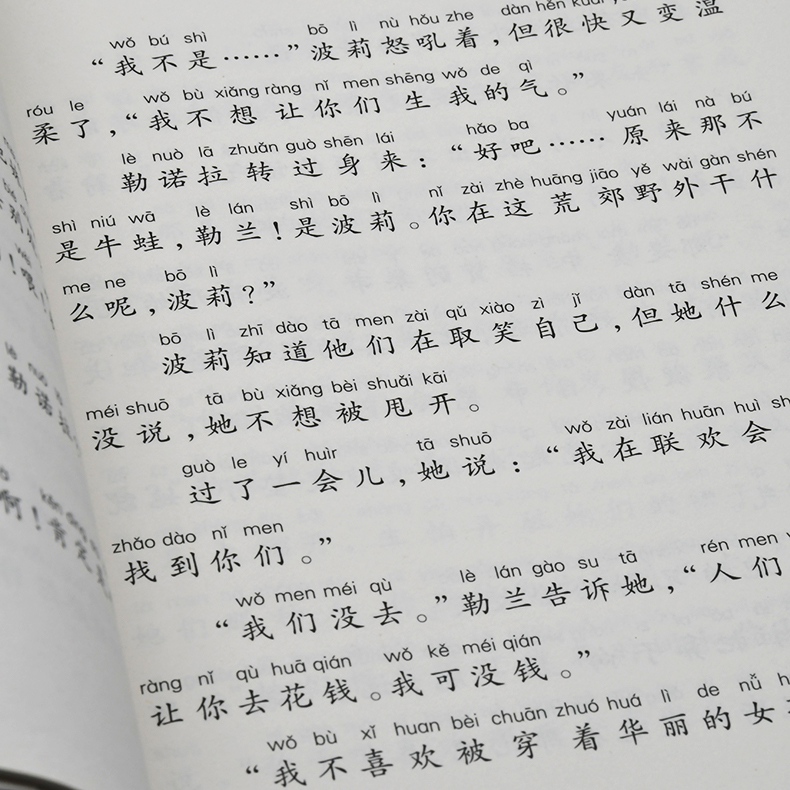 wǒ bú shì bō lì nù hǒu zhe dàn hěn kuài
“我不是……”波莉怒吼着，但很快又变温
róu le wǒ bù xiǎng ràng nǐ men shēng wǒ de qì
柔了，“我不想让你们生我的气。”
lè nuò lā zhuǎn guò shēn lái hǎo ba yuán lái nà bú
勒诺拉转过身来：“好吧……原来那不
shì niú wā lè lán shì bō lì nǐ zài zhè huāng jiāo yě wài gàn shén
是牛蛙，勒兰！是波莉。你在这荒郊野外干什
me ne bō lì
么呢，波莉？”
bō lì zhī dào tā men zài qǔ xiào zì jǐ dàn tā shén me
波莉知道他们在取笑自己，但她什么
méi shuō tā bù xiǎng bèi shuǎi kāi
没说，她不想被甩开。
guò le yí huìr tā shuō wǒ zài lián huān huì
过了一会儿，她说：“我在联欢会
zhǎo dào nǐ men
找到你们。”
wǒ men méi qù lè lán gào su tā rén men
“我们没去。”勒兰告诉她，“人们
ràng nǐ qù huā qián wǒ kě méi qián
让你去花钱。我可没钱。”
wǒ bù xǐ huan bèi chuān zhuó huá lì de nǚ
“我不喜欢被穿着华丽的女